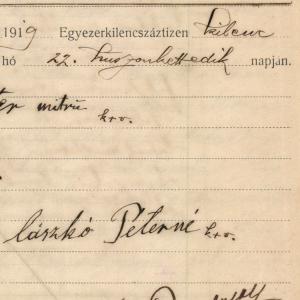 1919 Egyezerkilencszáztizen kilenc
hó 22. huszonkettedik napján.
mitru
kro.
László Péterné kro.